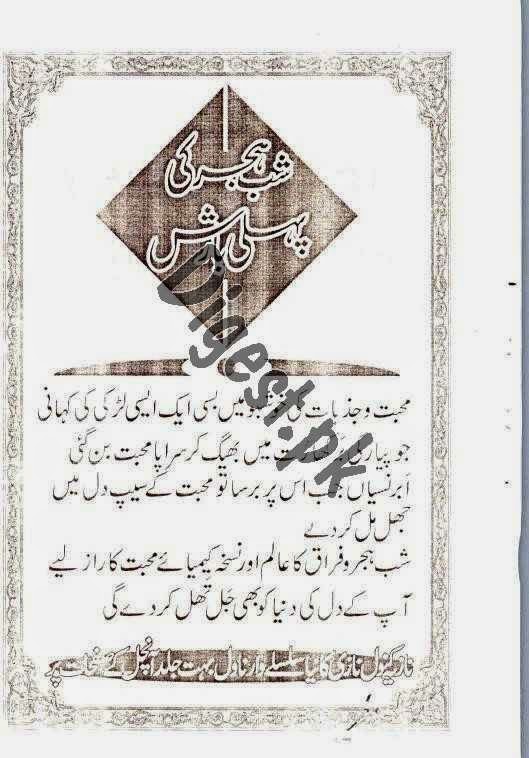 شب ہجر کی
پہلی بارش
محبت و جذبات کی خوشبو میں بسی ایک ایسی لڑکی کی کہانی
جو پیار کی برکھا رت میں بھیگ کر سراپا محبت بن گئی
اَبرنیساں جب اس پر برسا تو محبت کے سیپ دل میں
جھل مل کر دیے
شب ہجر و فراق کا عالم اور نسخہ کیمیائے محبت کا راز لیے
آپ کے دل کی دنیا کو بھی جَل تھل کر دے گی
نازیہ کنول نازی کا نیا سلسلے وار ناول بہت جلد آنچل کے صفحات پر
Digest.pk